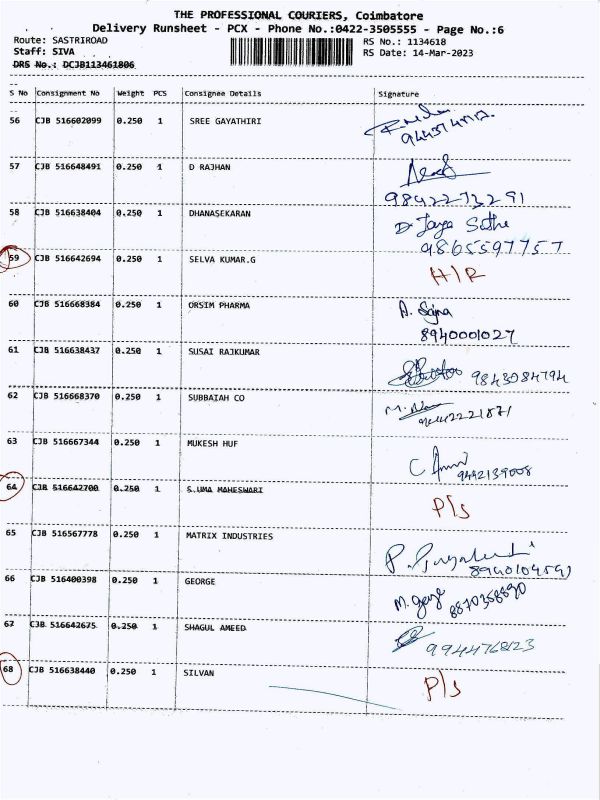 THE PROFESSIONAL COURIERS, Coimbatore
Delivery Runsheet - PCX - Phone No.:0422-3505555 - Page No.:6
Route: SASTRIROAD RS No.: 1134618
Staff: SIVA RS Date: 14-Mar-2023
DRS No.: DCJB113461806
S No Consignment No Weight PCS Consignee Details Signature
56 CJB 516602099 0.250 1 SREE GAYATHIRI
57 CJB 516648491 0.250 1 D RAJHAN
9842273291
58 CJB 516638404 0.250 1 DHANASEKARAN D. Jaya Sudha
9865597757
59 CJB 516642694 0.250 1 SELVA KUMAR.G H/R
60 CJB 516668384 0.250 1 ORSIM PHARMA A. Sajna
8940001027
61 CJB 516638437 0.250 1 SUSAI RAJKUMAR 9843084794
62 CJB 516668370 0.250 1 SUBBAIAH CO
63 CJB 516667344 0.250 1 MUKESH HUF
9442139008
64 CJB 516642700 0.250 1 S.UMA MAHESWARI P/S
65 CJB 516567778 0.250 1 MATRIX INDUSTRIES
66 CJB 516400398 0.250 1 GEORGE M. George 8870358890
67 CJB 516642675 0.250 1 SHAGUL AMEED 9944768123
68 CJB 516638440 0.250 1 SILVAN P/S